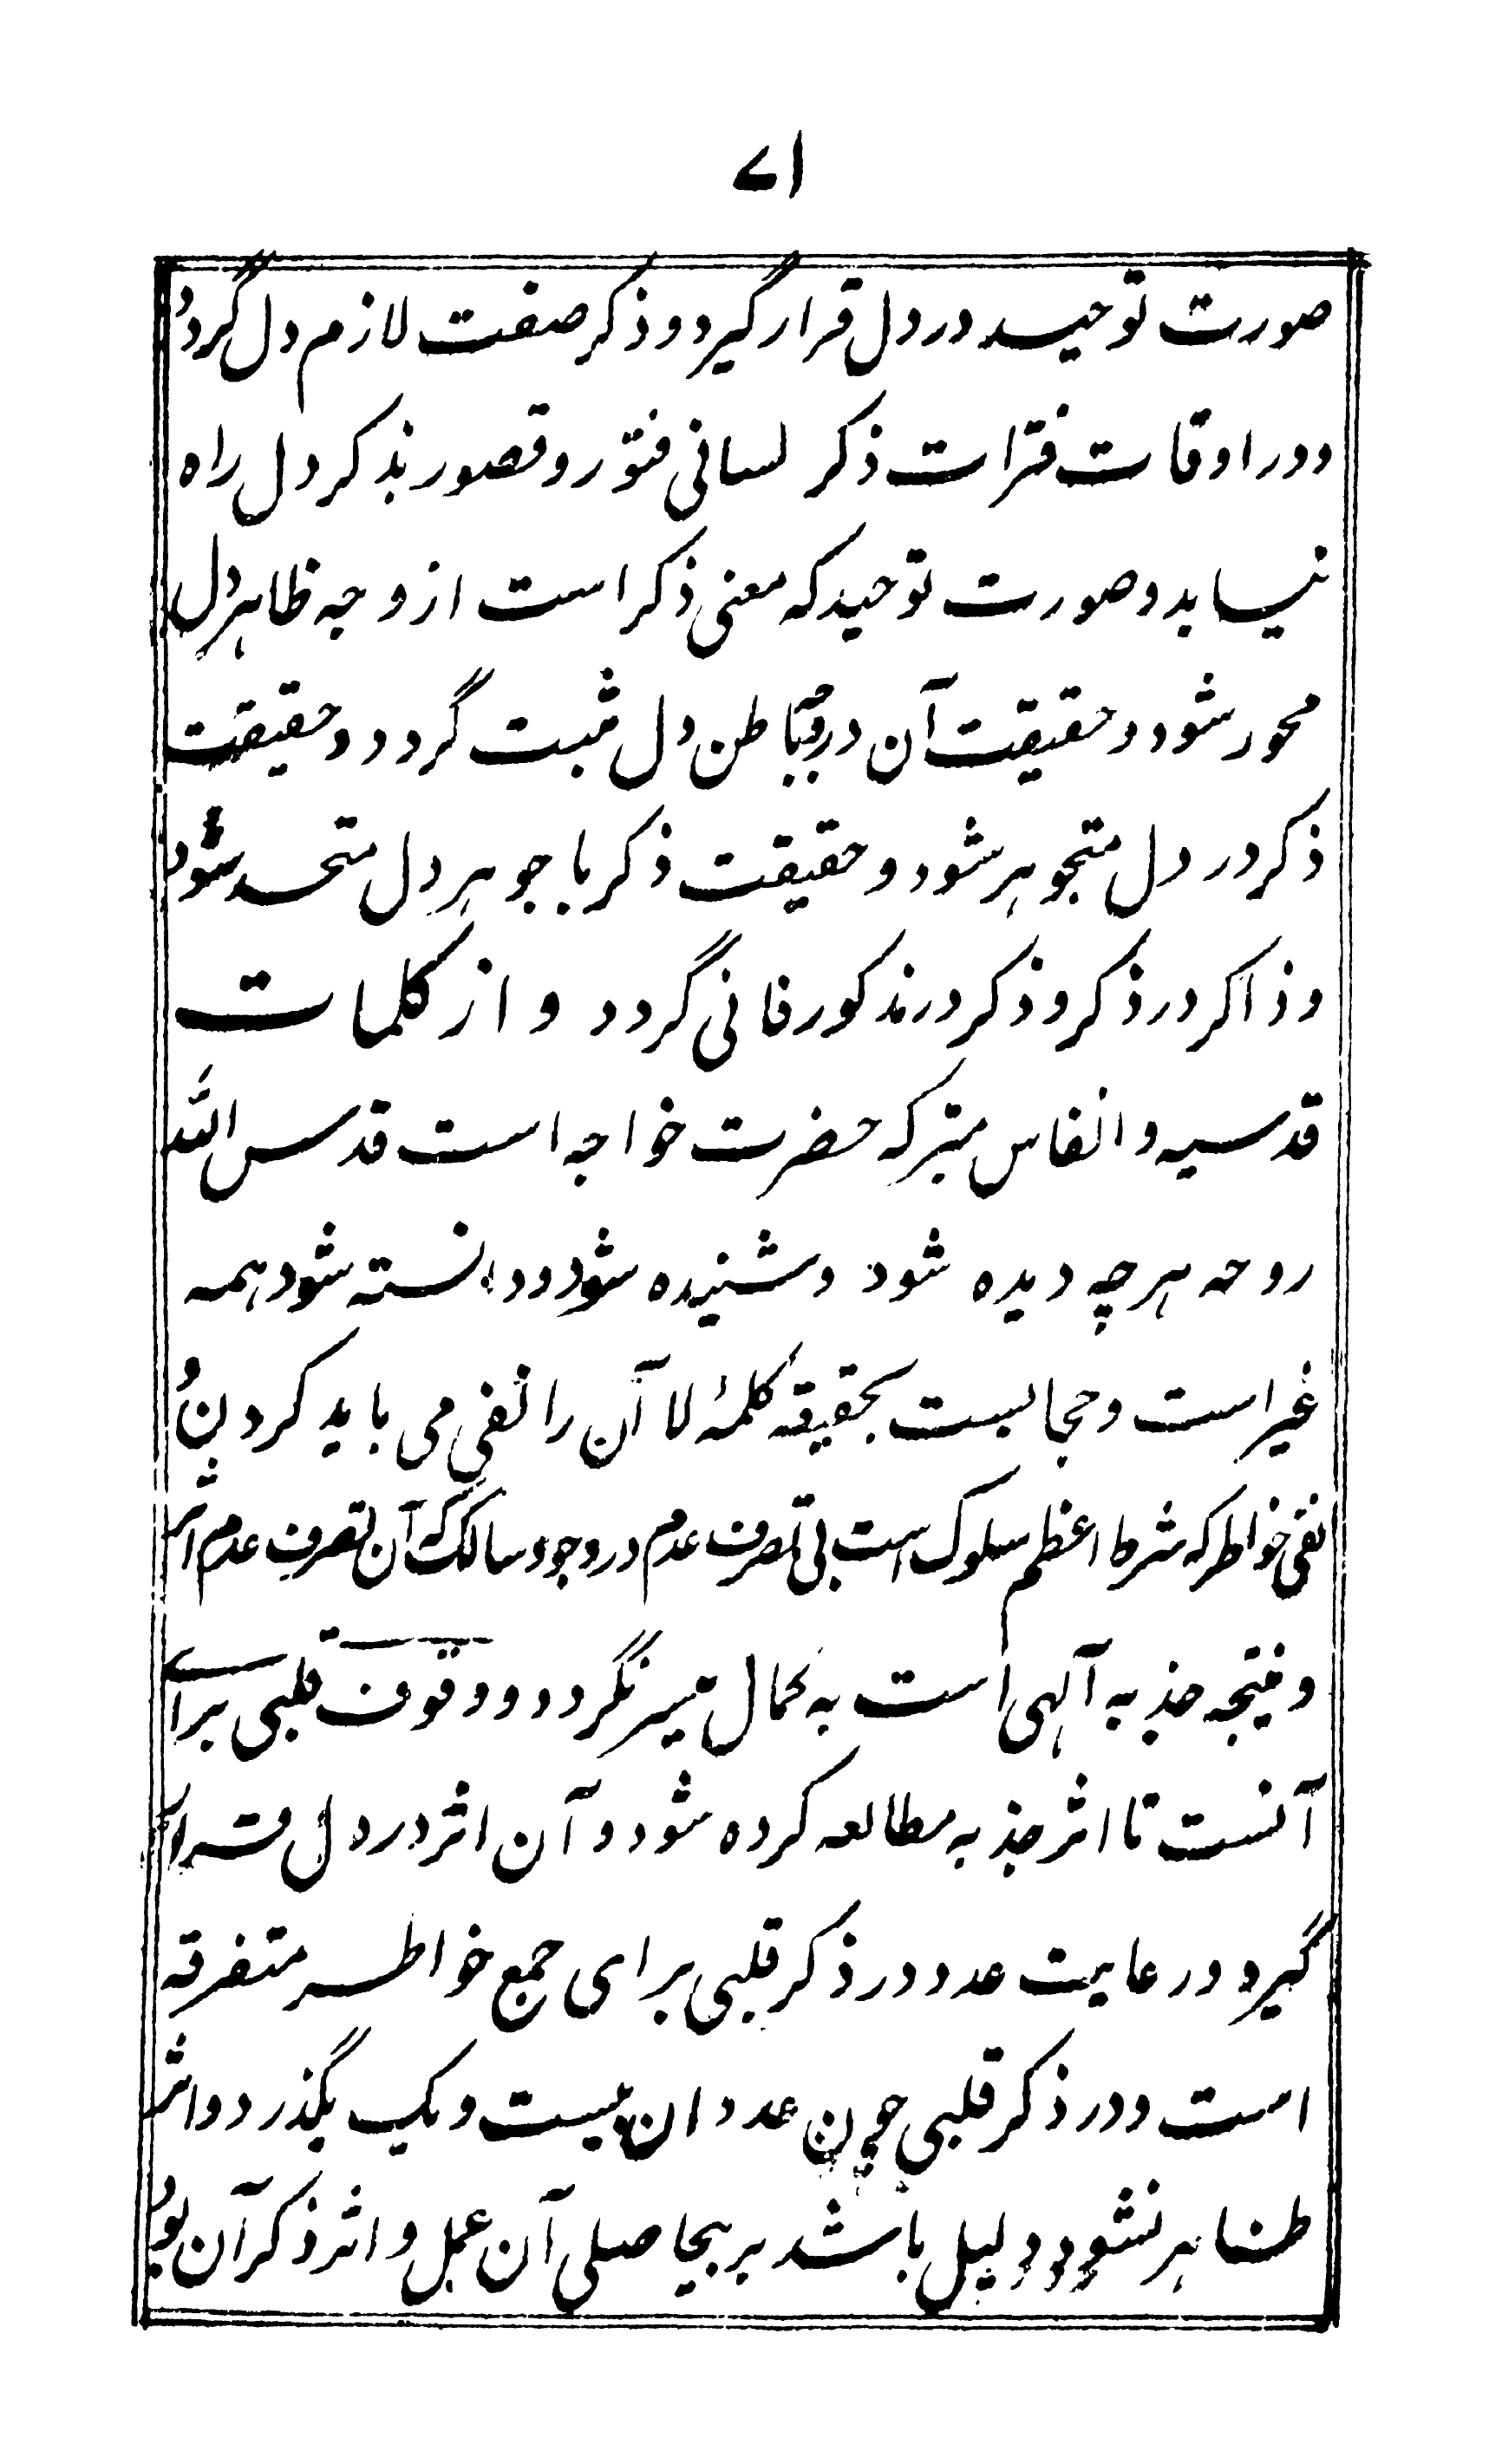 ۷۱
صورت توحید در دل قرار گیرد و ذکر صفت لازم دل گردد
و در اوقات فترات ذکر لسانی فتور و قصور بذکر دل راه
نیابد و صورت توحید که معنی ذکر است از وجه ظاهر دل
محور شود و حقیقت آن در باطن دل مثبت گردد و حقیقت
ذکر در دل متجوهر شود و حقیقت ذکر با جوهر دل متحد شود
و ذاکر در ذکر و ذکر در مذکور فانی گردد و از کلمات
قدسیه و انفاس متبرکه حضرت خواجه است قدس الله
روحه هرچه دیده شود و شنیده شود و دانسته شود همه
غیر است و حجابست بحقیقة کلمهٔ لا آن را نفی می باید کردن و
نفی خواطر که شرط اعظم سلوک است بی تصرف عدم در وجود سالک که آن تصرف عدم اثر
و نتیجه جذبه آلهی است به کمال میسر نگردد و وقوف قلبی برای
آنست تا اثر جذبه مطالعه کرده شود و آن اثر در دل قرار
گیرد و رعایت عدد در ذکر قلبی برای جمع خواطر متفرقه
است و در ذکر قلبی چون عدد از بیست و یک بگذرد و اثر
ظاهر نشود دلیل باشد بر بیحاصلی آن عمل و اثر ذکر آن بود